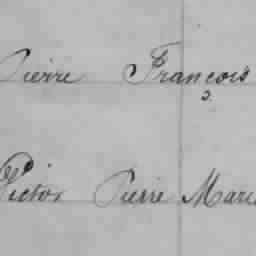 Pierre François
Victor Pierre Marie